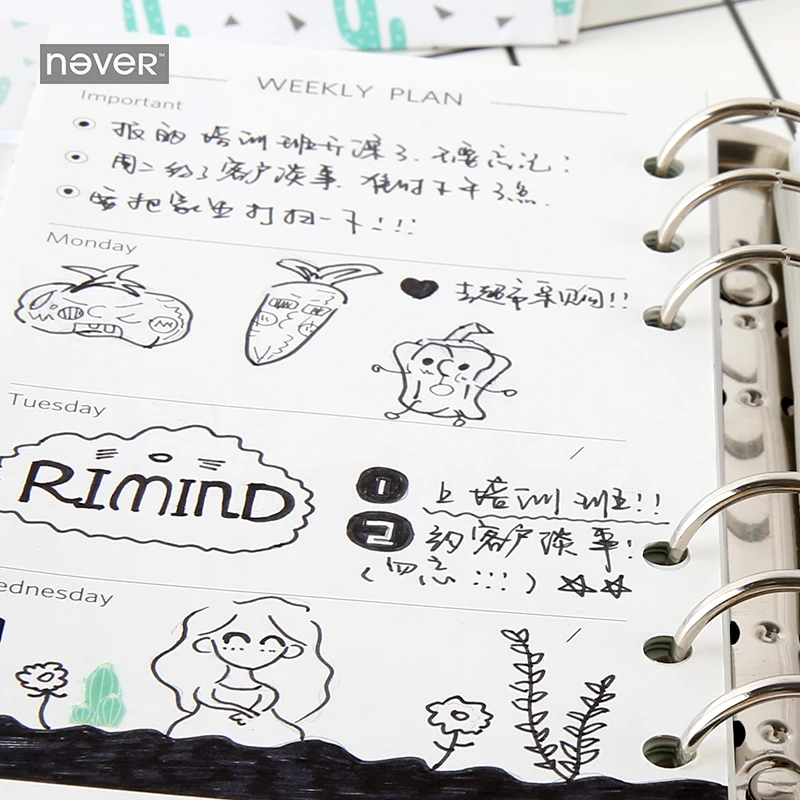 nəver™
WEEKLY PLAN
Important
报的培训班开课了.不要忘记:
周二约了客户谈事.准时
要把家里打扫一下!!!
Monday
去超市采购!!
Tuesday
RIMIND
1 上培训班!!
2 约客户谈事!
(勿忘:::)
ednesday